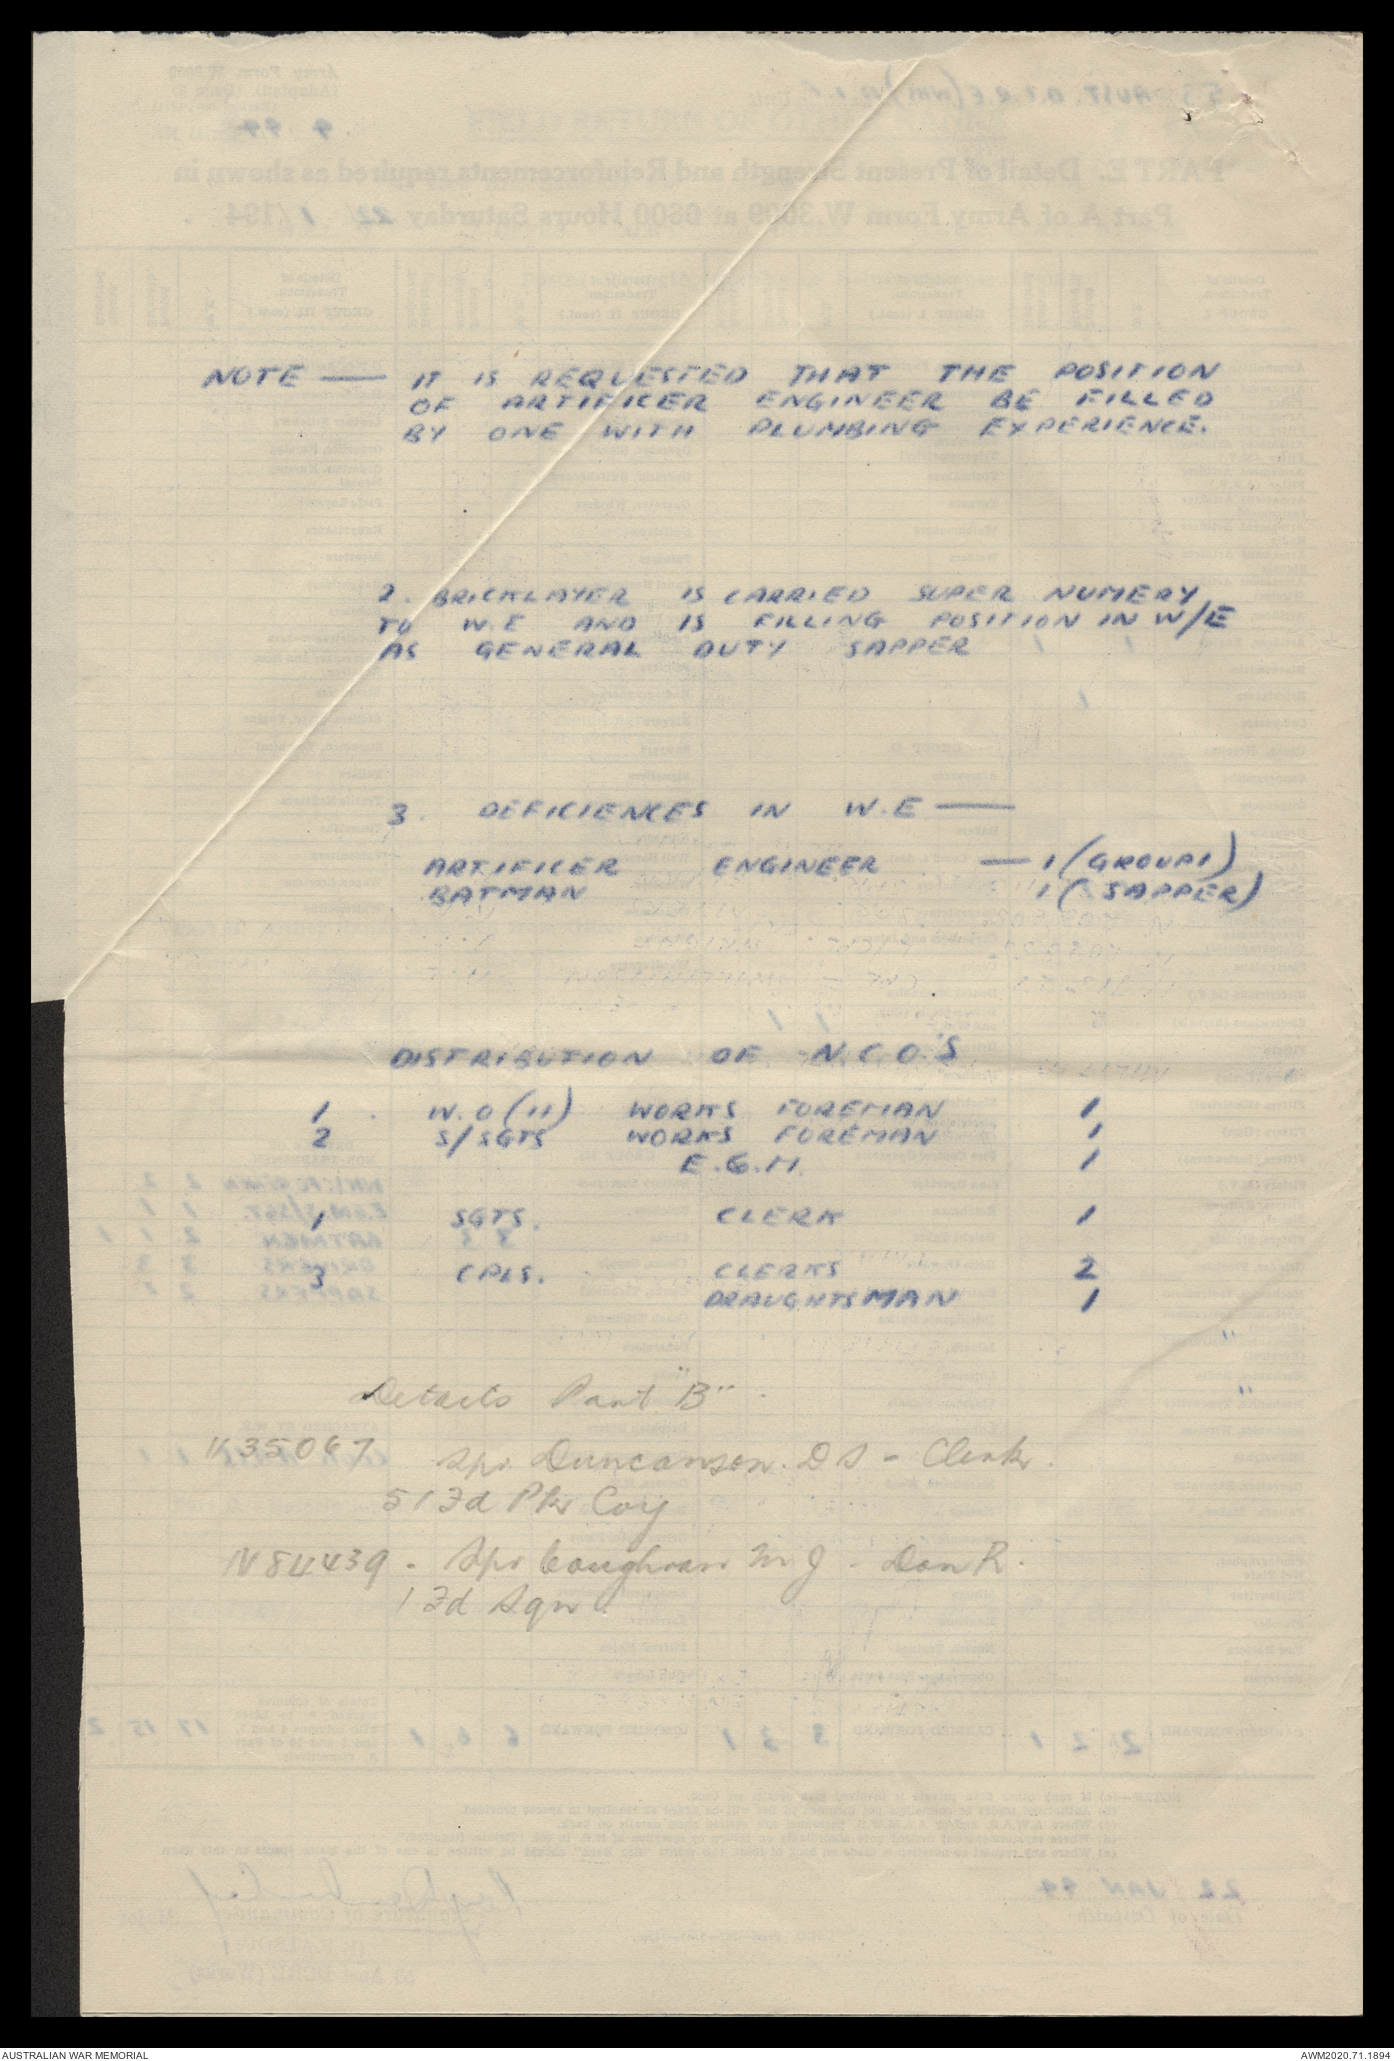 NOTE — IT IS REQUESTED THAT THE POSITION
OF ARTIFICER ENGINEER BE FILLED
BY ONE WITH PLUMBING EXPERIENCE.
2. BRICKLAYER IS CARRIED SUPER NUMERY
TO W.E AND IS FILLING POSITION IN W/E
AS GENERAL DUTY SAPPER
3. DEFICIENCES IN W.E —
ARTIFICER ENGINEER — 1 (GROUP 1)
BATMAN 1 (SAPPER)
DISTRIBUTION OF N.C.O.'S
1 . W.O (11) WORKS FOREMAN 1
2 S/SGTS WORKS FOREMAN 1
E.G.M. 1
1 SGTS. CLERK 1
3 CPLS. CLERKS 2
DRAUGHTSMAN 1
Details Part "B"
35067 Spr Duncanson. D S - Clerk.
5 Fd Pk Coy
N84439 - Spr Coughran M J - Don R.
1 Fd Sqn
AUSTRALIAN WAR MEMORIAL
AWM2020.71.1894